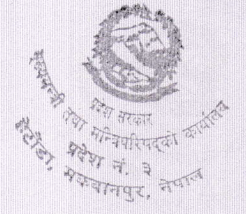 प्रदेश सरकार
मुख्यमन्त्री तथा मन्त्रिपरिषद्को कार्यालय
प्रदेश नं. ३
हेटौडा, मकवानपुर, नेपाल